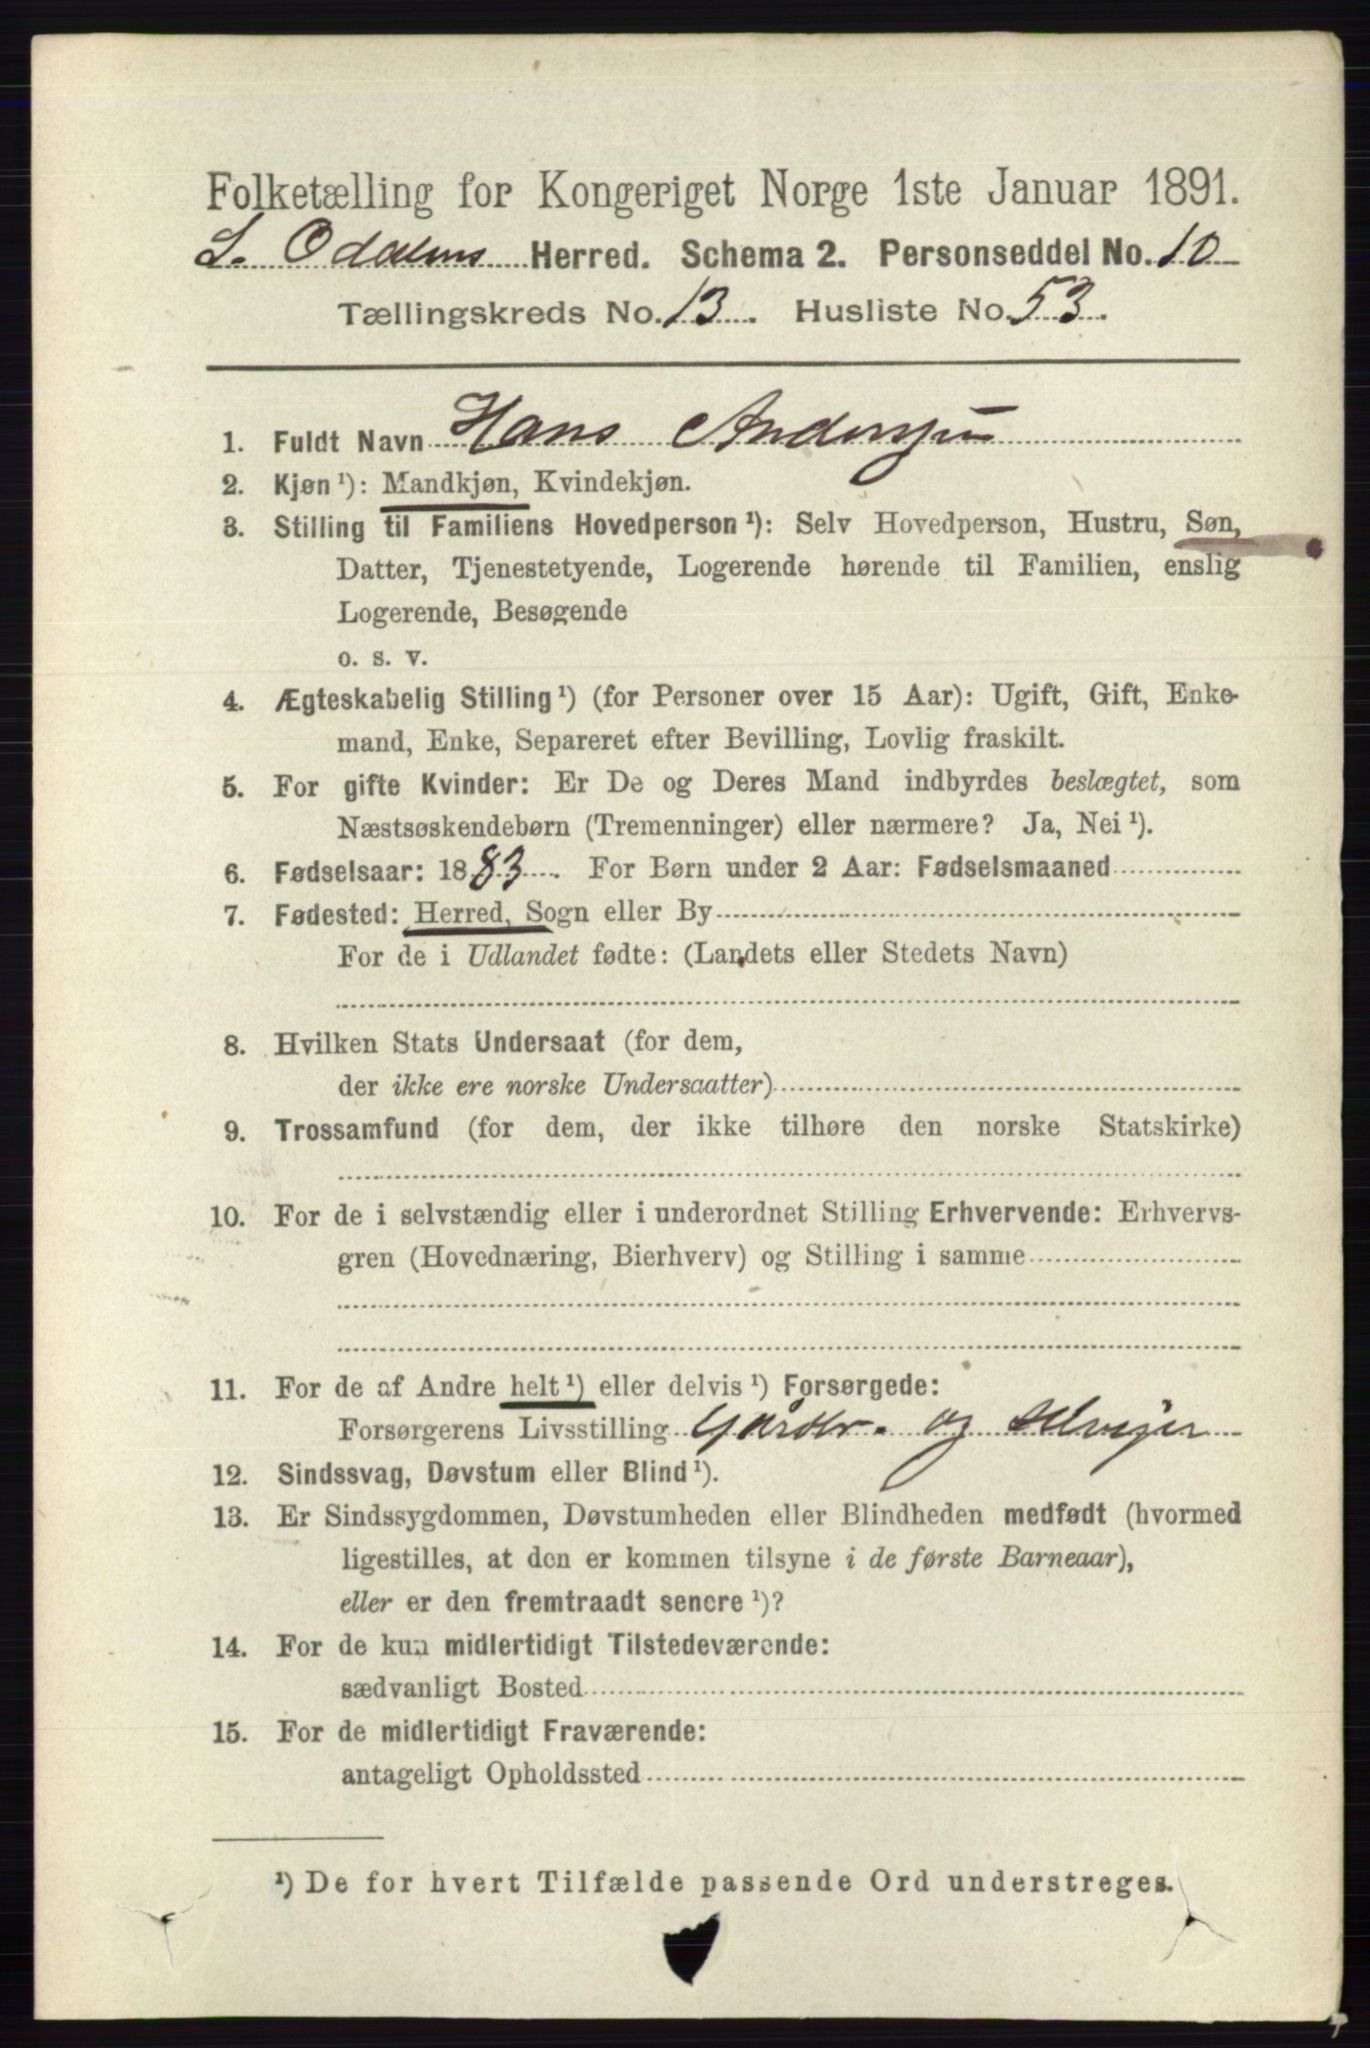 Folketælling for Kongeriget Norge 1ste Januar 1891.
S. Odalens Herred. Schema 2. Personseddel No. 10
Tællingskreds No. 13. Husliste No. 53.
1. Fuldt Navn Hans Andersen
2. Kjøn ¹): Mandkjøn, Kvindekjøn.
3. Stilling til Familiens Hovedperson ¹): Selv Hovedperson, Hustru, Søn,
Datter, Tjenestetyende, Logerende hørende til Familien, enslig
Logerende, Besøgende
o. s. v.
4. Ægteskabelig Stilling ¹) (for Personer over 15 Aar): Ugift, Gift, Enke-
mand, Enke, Separeret efter Bevilling, Lovlig fraskilt.
5. For gifte Kvinder: Er De og Deres Mand indbyrdes beslægtet, som
Næstsøskendebørn (Tremenninger) eller nærmere? Ja, Nei ¹).
6. Fødselsaar: 1883. For Børn under 2 Aar: Fødselsmaaned
7. Fødested: Herred, Sogn eller By
For de i Udlandet fødte: (Landets eller Stedets Navn)
8. Hvilken Stats Undersaat (for dem,
der ikke ere norske Undersaatter)
9. Trossamfund (for dem, der ikke tilhøre den norske Statskirke)
10. For de i selvstændig eller i underordnet Stilling Erhvervende: Erhvervs-
gren (Hovednæring, Bierhverv) og Stilling i samme
11. For de af Andre helt ¹) eller delvis ¹) Forsørgede:
Forsørgerens Livsstilling Gårdbr. og Selvejer
12. Sindssvag, Døvstum eller Blind ¹).
13. Er Sindssygdommen, Døvstumheden eller Blindheden medfødt (hvormed
ligestilles, at den er kommen tilsyne i de første Barneaar),
eller er den fremtraadt senere ¹)?
14. For de kun midlertidigt Tilstedeværende:
sædvanligt Bosted
15. For de midlertidigt Fraværende:
antageligt Opholdssted
¹) De for hvert Tilfælde passende Ord understreges.